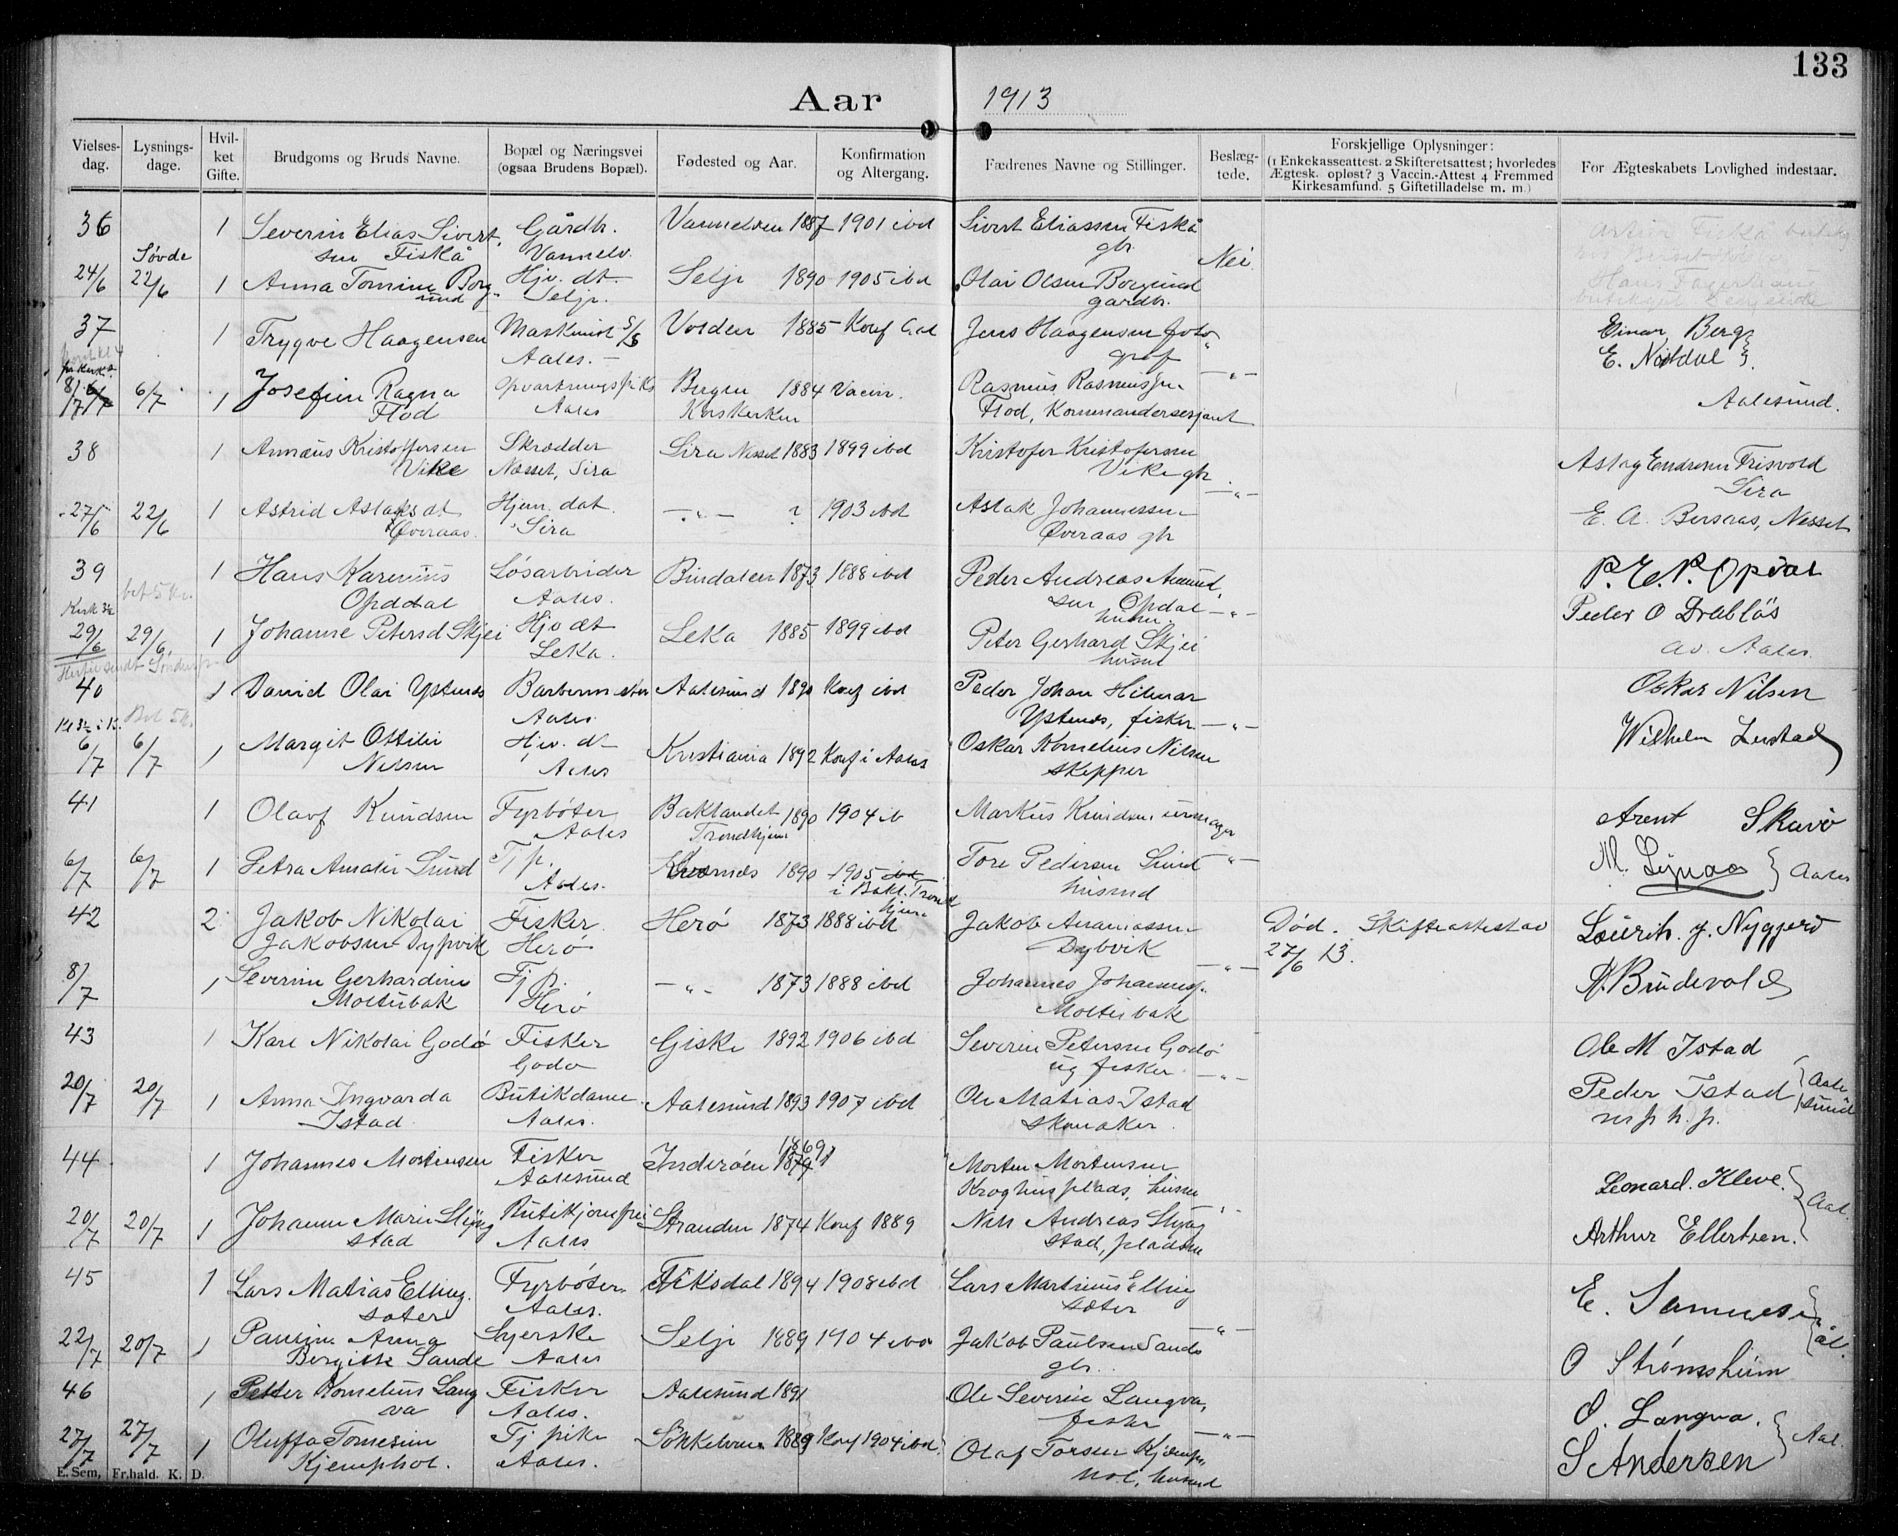 133
Aar 1913
Vielses-dag. Lysnings-dage. Hvil-ket Gifte. Brudgoms og Bruds Navne. Bopæl og Næringsvei (ogsaa Brudens Bopæl). Fødested og Aar. Konfirmation og Altergang. Fædrenes Navne og Stillinger. Beslæg-tede. Forskjellige Oplysninger: (1 Enkekasseattest. 2 Skifteretsattest; hvorledes Ægtesk. opløst? 3 Vaccin.-Attest 4 Fremmed Kirkesamfund. 5 Giftetilladelse m. m.) For Ægteskabets Lovlighed indestaar.
36 1 Severin Elias Sivert Gårdbr. Vannelven 1887 1901 ibd Sivert Eliassen Fiskå
Søvde sen Fiskå Vannelv. gbr Nei
24/6 22/6 1 Anna Tomine Borg Hjv. dt. Selje 1890 1905 ibd Olai Olsen Borgund
und Selje. gardbr.
37 1 Trygve Haagensen Maskinist S/S Volden 1885 Konf Aal Jens Haagensen foto Einar Berg
Aales. graf E. Norddal
8/7 6/7 1 Josefine Ragna Opvartningspike Bergen 1884 Vaccin. Rasmus Rasmussen
Flod Aales Korskirken Flod, Kommandersersjant Aalesund.
38 1 Annæus Kristoffersen Skrædder Sira Nesset 1883 1899 ibd Kristofer Kristofersen
Vike Nesset, Sira Vike gbr Aslag Endresen Frisvold
Sira
27/6 22/6 1 Astrid Aslaksdt Hjem. dat. -„- ? 1903 ibd Aslak Johannessen E. A. Bersaas, Nesset
Øveraas. Sira Øveraas gbr
39 1 Hans Karenius Løsarbeider Bindalen 1873 1888 ibd Peder Andreas Amund, P. E. P. Opdal
bet 5 kr. Opddal Aales. sen Opdal -„- Peder O Drabløs
29/6 29/6 1 Johanne Petersd Skjei Hjv dt Leka 1885 1899 ibd Peter Gerhard Skjei av. Aales.
Leka. husmd
40 1 David Olai Ystenes Barbermester Aalesund 1890 Konf ibd Peder Johan Hilmar Oskar Nilsen
Bet 5 k. Aales. Ystenes, fisker -„-
6/7 6/7 1 Margit Ottilie Hjv. dt Kristiania 1892 Konf i Aales Oskar Kornelius Nilsen Wilhelm Lerstad
Nilsen Aales skipper
41 1 Olavf Knudsen Fyrbøter Baklandet 1890 1904 ib Markus Knudsen urmager Arent Skavø
Aales Trondhjem
6/7 6/7 1 Petra Amalie Lund Tj p. 1890 1905 ibd Tore Pedersen Lund -„- Aales
Aales. i Bakl. Trond hjem husmd
42 2 Jakob Nikolai Fisker Herø 1873 1888 ibd Jakob Ananiassen Død. Skifteattest av Laurits. J. Nyggjerd
Jakobsen Dypvik Herø Dybvik 27/6 13.
8/7 1 Severine Gerhardine Tj p. -„- 1873 1888 ibd Johannes Johannesp. -„-
Moltubak Herø Moltubak
43 1 Karl Nikolai Godø Fisker Giske 1892 1906 ibd Severin Petersen Godø Ole M Istad
Godø og fisker -„-
20/7 20/7 1 Anna Ingvarda Butikdame Aalesund 1893 1907 ibd Ole Matias Istad Peder Istad Aalesund
Istad Aales. skomaker m p h. p.
44 1 Johannes Mortensen Fisker Inderøen 1869 Morten Mortensen Leonard. Kleve. Aal.
Aalesund Kroghusplads, husm
20/7 20/7 1 Johanne Marie Slyng Butikjomfru Stranden 1874 Konf 1889 Nils Andreas Slyng
stad Aales stad, pladsm Arthur Ellertsen.
45 1 Lars Matias Elling Fyrbøter Fiksdal 1894 1908 ibd Lars Martinus Elling
sæter Aales. sæter -„-
22/7 20/7 1 Pauline Anna Syerske Selje 1889 1904 ibd Jakob Paulsen Sande Aal.
Bergitte Sande Aales gbr. O Strømsheim
46 1 Petter Kornelius Lang Fisker Aalesund 1891 Ole Severin Langva, O. Langva.
va Aales. fisker Aal.
27/7 27/7 1 Oluffa Tomesine Tj pike 1889 Konf 1904 ibd Olaf Torsen Kjemp S Andersen
Kjemphol. Aales. hol, husmd
E. Sem, Fr.hald. K. D.